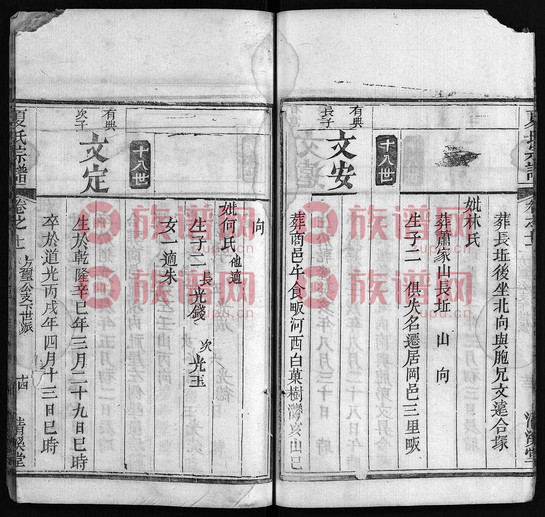 葬長坵後坐北向與胞兄文遠合塚
妣林氏
葬蕭家山長坵 山 向
生子二 俱失名遷居岡邑三里畈
十八世
有興
長子
文安
葬商邑牛食畈河西白菓樹灣亥山巳
向
妣何氏 他適
生子二 長 光錢 次 光玉
女一適朱
十八世
有興
次子
文定
生於乾隆辛巳年三月二十九日巳時
卒於道光丙戌年四月十三日巳時
夏氏宗譜
卷之十一
十四
清溪堂
族谱网
族谱网
族谱网
族谱网